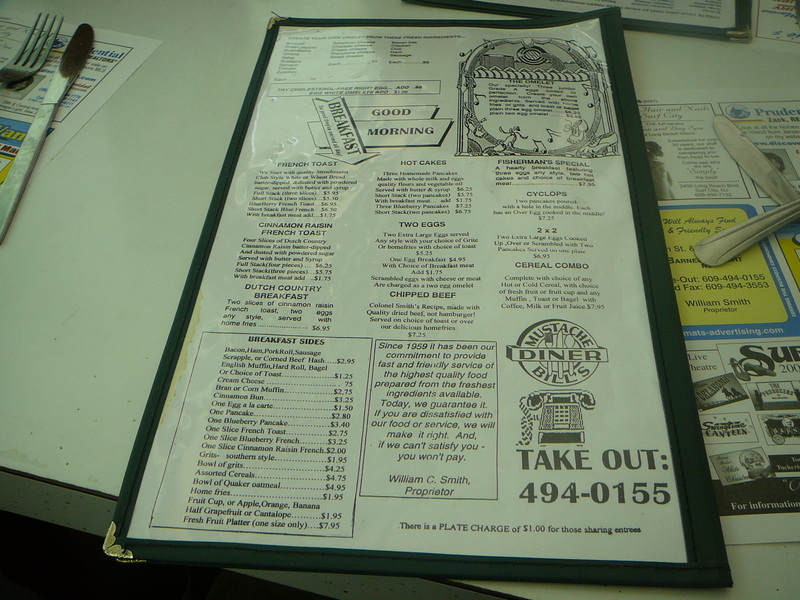 CREATE YOUR OWN OMELET FROM THESE FRESH INGREDIENTS...
TRY CHOLESTEROL-FREE RIGHT EGG... ADD .90
EGG WHITE OMELETTE ADD $1.00
BREAKFAST
GOOD
MORNING
THE OMELET
FRENCH TOAST
We Start with quality Stroehmann
Club Style White or Wheat Bread
batter-dipped, dusted with powdered
sugar, served with butter and syrup
Full Stack (three slices)... $5.95
Short Stack (two slices)... $5.50
Blueberry French Toast $6.95
Short Stack Blue French $6.50
With breakfast meat add....$1.75
CINNAMON RAISIN
FRENCH TOAST
Four Slices of Dutch Country
Cinnamon Raisin batter-dipped
And dusted with powdered sugar
Served with butter and Syrup
Full Stack(four pieces)... $6.25
Short Stack(three pieces)...$5.75
With breakfast meat add...$1.75
DUTCH COUNTRY
BREAKFAST
Two slices of cinnamon raisin
French toast, two eggs
any style, served with
home fries ........ $6.95
BREAKFAST SIDES
Bacon,Ham,PorkRoll,Sausage
Scrapple, or Corned Beef Hash...$2.95
English Muffin,Hard Roll, Bagel
Or Choice of Toast...$1.25
Cream Cheese ... 75
Bran or Corn Muffin...$2.75
Cinnamon Bun...$3.25
One Egg a la carte...$1.50
One Pancake...$2.80
One Blueberry Pancake...$3.40
One Slice French Toast...$2.75
One Slice Blueberry French...$3.25
One Slice Cinnamon Raisin French.$2.00
Grits- southern style...$1.95
Bowl of grits...$4.25
Assorted Cereals...$4.75
Bowl of Quaker oatmeal...$4.95
Home fries...$1.95
Fruit Cup, or Apple,Orange, Banana
Half Grapefruit or Cantalope...$1.95
Fresh Fruit Platter (one size only)...$7.95
HOT CAKES
Three Homemade Pancakes
Made with whole milk and eggs
quality flours and vegetable oil
Served with butter & syrup $6.25
Short Stack (two pancakes) $5.75
With breakfast meat... add $1.75
Three Blueberry Pancakes $7.25
Short Stack(two pancakes) $6.75
TWO EGGS
Two Extra Large Eggs served
Any style with your choice of Grits
Or homefries with choice of toast
$5.25
One Egg Breakfast $4.95
With Choice of Breakfast meat
Add $1.75
Scrambled eggs with cheese or meat
Are charged as a two egg omelet
CHIPPED BEEF
Colonel Smith's Recipe, made with
Quality dried beef, not hamburger!
Served on choice of toast or over
our delicious homefries
$7.25
Since 1959 it has been our
commitment to provide
fast and friendly service of
the highest quality food
prepared from the freshest
ingredients available.
Today, we guarantee it.
If you are dissatisfied with
our food or service, we will
make it right. And,
if we can't satisfy you -
you won't pay.
William C. Smith,
Proprietor
FISHERMAN'S SPECIAL
A hearty breakfast featuring
three eggs any style, two hot
cakes and choice of breakfast
meat ........ $7.95
CYCLOPS
Two pancakes poured
with a hole in the middle. Each
has an Over Egg cooked in the middle!
$7.25
2 x 2
Two Extra Large Eggs Cooked
Up ,Over or Scrambled with Two
Pancakes Served on one plate
$6.95
CEREAL COMBO
Complete with choice of any
Hot or Cold Cereal, with choice
of fresh fruit or fruit cup and any
Muffin , Toast or Bagel with
Coffee, Milk or Fruit Juice.$7.95
MUSTACHE
DINER
BILL'S
TAKE OUT:
494-0155
There is a PLATE CHARGE of $1.00 for those sharing entrees
Will Always Find
& Friendly
609-494-0155
Fax: 609-494-3553
William Smith
Proprietor
mats-advertising.com
Live
Theatre
For information